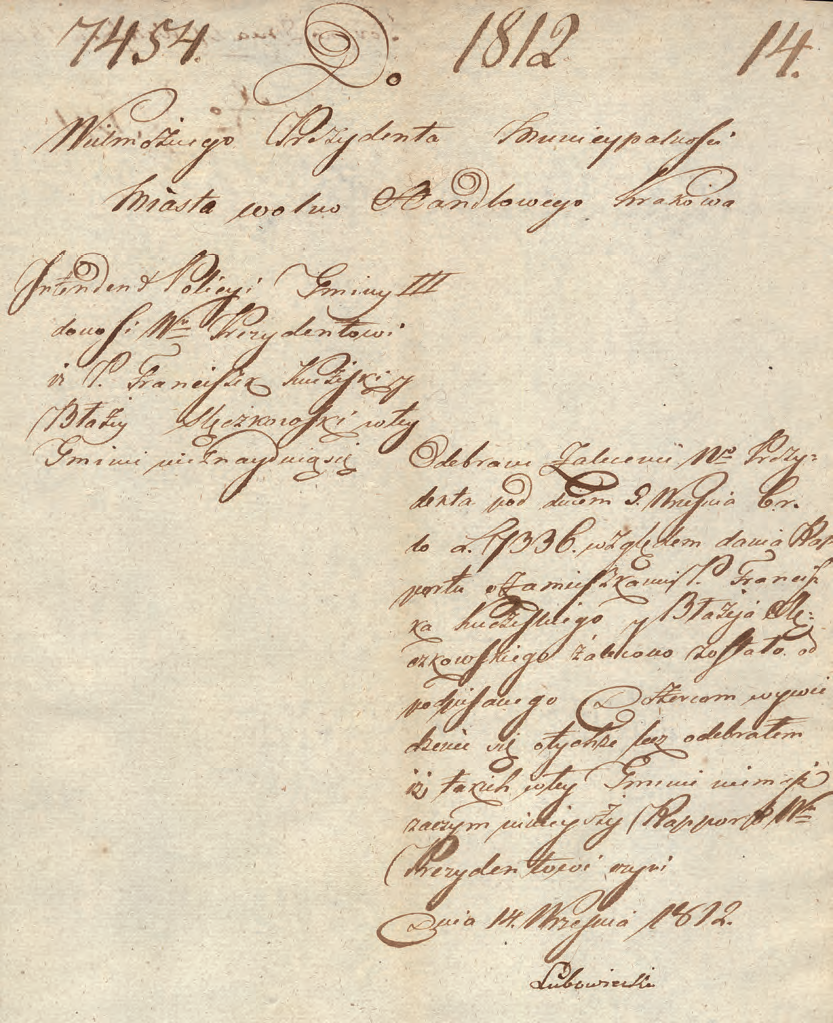 7454. D. 1812 14.
Wielmożnego Prezydenta Municypalności
Miasta wolno Handlowego Krakowa
Intendent Policyi Gminy III
donosi Wu Prezydentowi
iż P. Franciszek Kuczyski y
Błażéy Slęczkowski w tey
Gminie nieznayduią się
Odebrane Zalecenie Wo Prezy-
denta pod dniem 9. Wrzesnia br.
do L. 7336. względem dania Rap
portu o Zamieszkaniu P. Francisz
ka Kuczyskiego y Błażeja Slę-
czkowskiego zalecono zostało od
podpisanego Dozorcom wywie
dzenie się otychże lecz odebrałem
iż takich w tey Gminie niemasz
zaczym nineyszy Rapport Wu
Prezydentowi czyni
Dnia 14. Wrzesnia 1812.
Lubowiecki